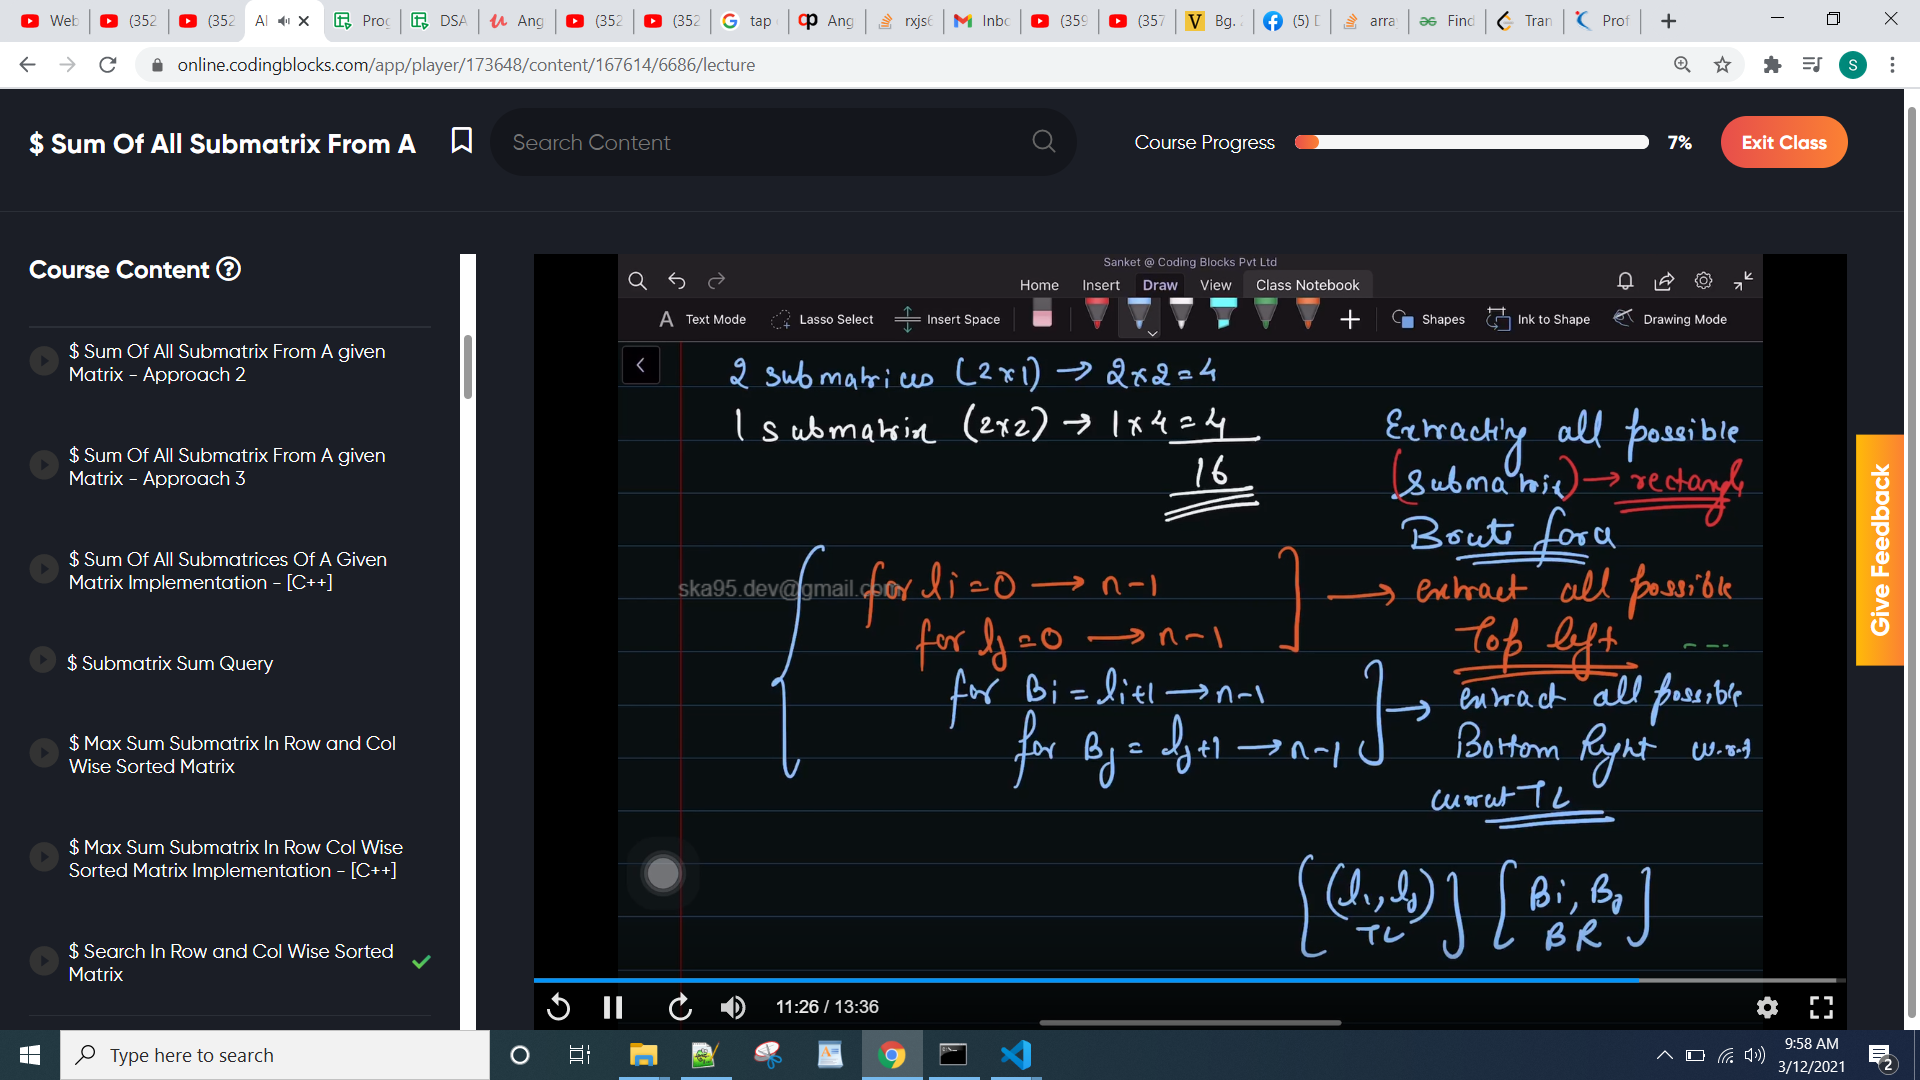 Web
(352
(352
Al
Prog
DSA
Ang
(352
(352
tap
Ang
rxjs6
Inbo
(359
(357
Bg.
(5) D
arra
Find
Tran
Prof
online.codingblocks.com/app/player/173648/content/167614/6686/lecture
S
$ Sum Of All Submatrix From A
Search Content
Course Progress
7%
Exit Class
Course Content
$ Sum Of All Submatrix From A given
Matrix - Approach 2
$ Sum Of All Submatrix From A given
Matrix - Approach 3
$ Sum Of All Submatrices Of A Given
Matrix Implementation - [C++]
$ Submatrix Sum Query
$ Max Sum Submatrix In Row and Col
Wise Sorted Matrix
$ Max Sum Submatrix In Row Col Wise
Sorted Matrix Implementation - [C++]
$ Search In Row and Col Wise Sorted
Matrix
Sanket @ Coding Blocks Pvt Ltd
Home Insert Draw View Class Notebook
Text Mode Lasso Select Insert Space Shapes Ink to Shape Drawing Mode
2 submatrices (2x1) → 2x2=4
1 submatrix (2x2) → 1x4=4
16
Extracting all possible
(submatrix) → rectangle
Brute force
ska95.dev@gmail.com
for li=0 → n-1
for lj=0 → n-1
→ extract all possible
Top left
for Bi = li+1 → n-1
for Bj = lj+1 → n-1
→ extract all possible
Bottom Right w.r.t
current TL
[(li, lj) TL] [Bi, Bj BR]
11:26 / 13:36
Give Feedback
Type here to search
9:58 AM
3/12/2021
2